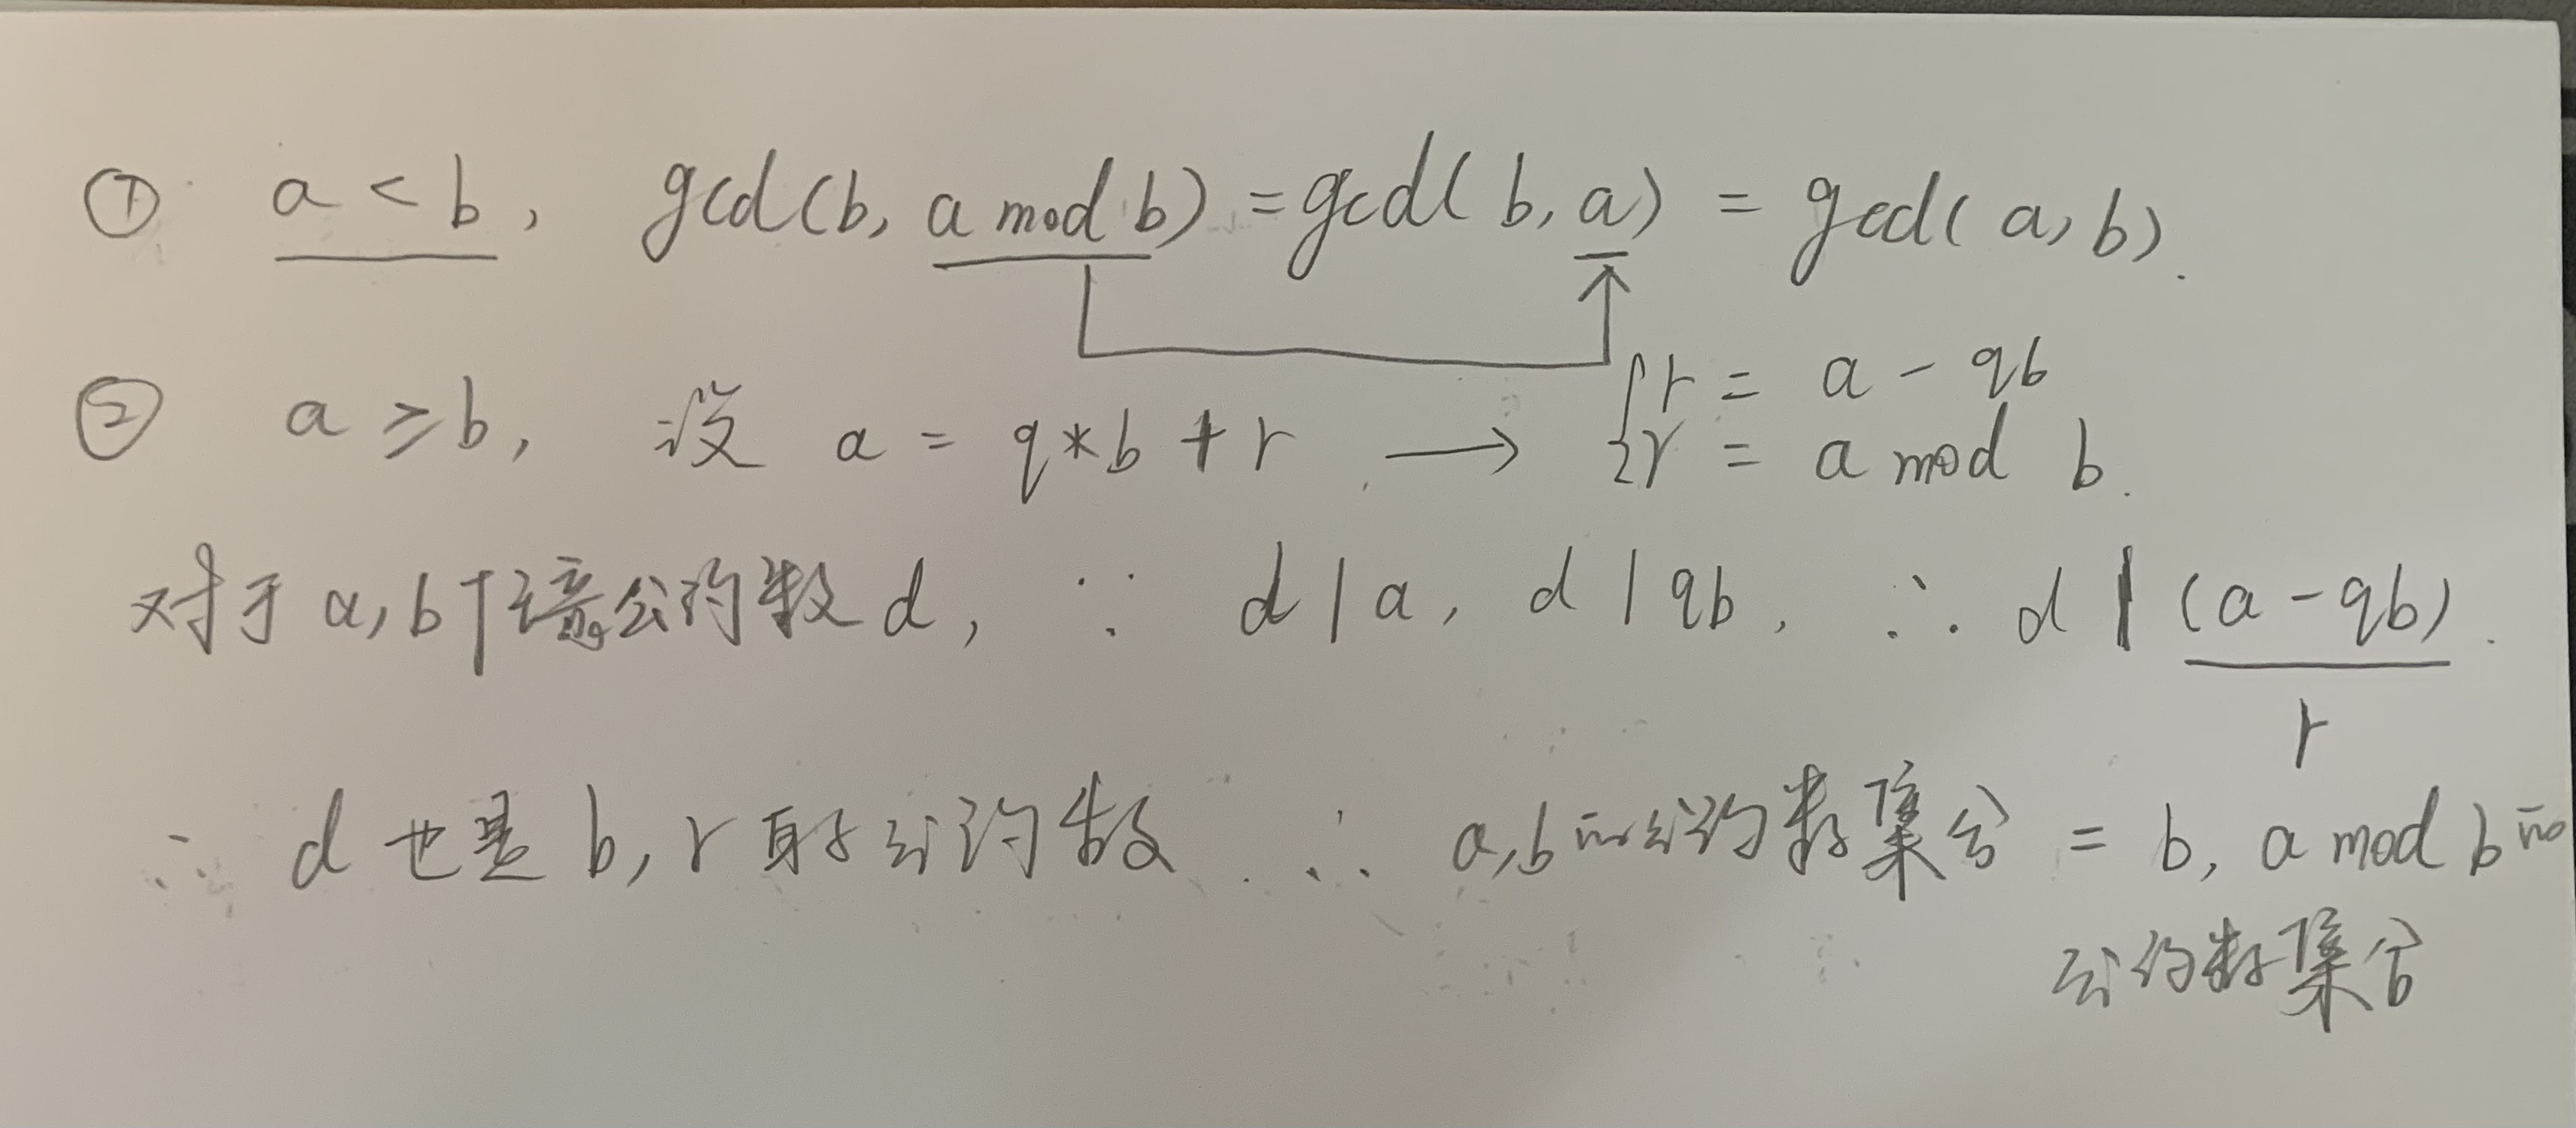 ① a < b, gcd(b, a mod b) = gcd(b, a) = gcd(a, b).
② a ≥ b, 设 a = q*b + r → { r = a - qb
r = a mod b.
对于 a, b 任意公约数 d, ∵ d | a, d | qb, ∴ d | (a - qb).
r
∴ d 也是 b, r 的公约数 ∴ a, b 的公约数集合 = b, a mod b 的
公约数集合